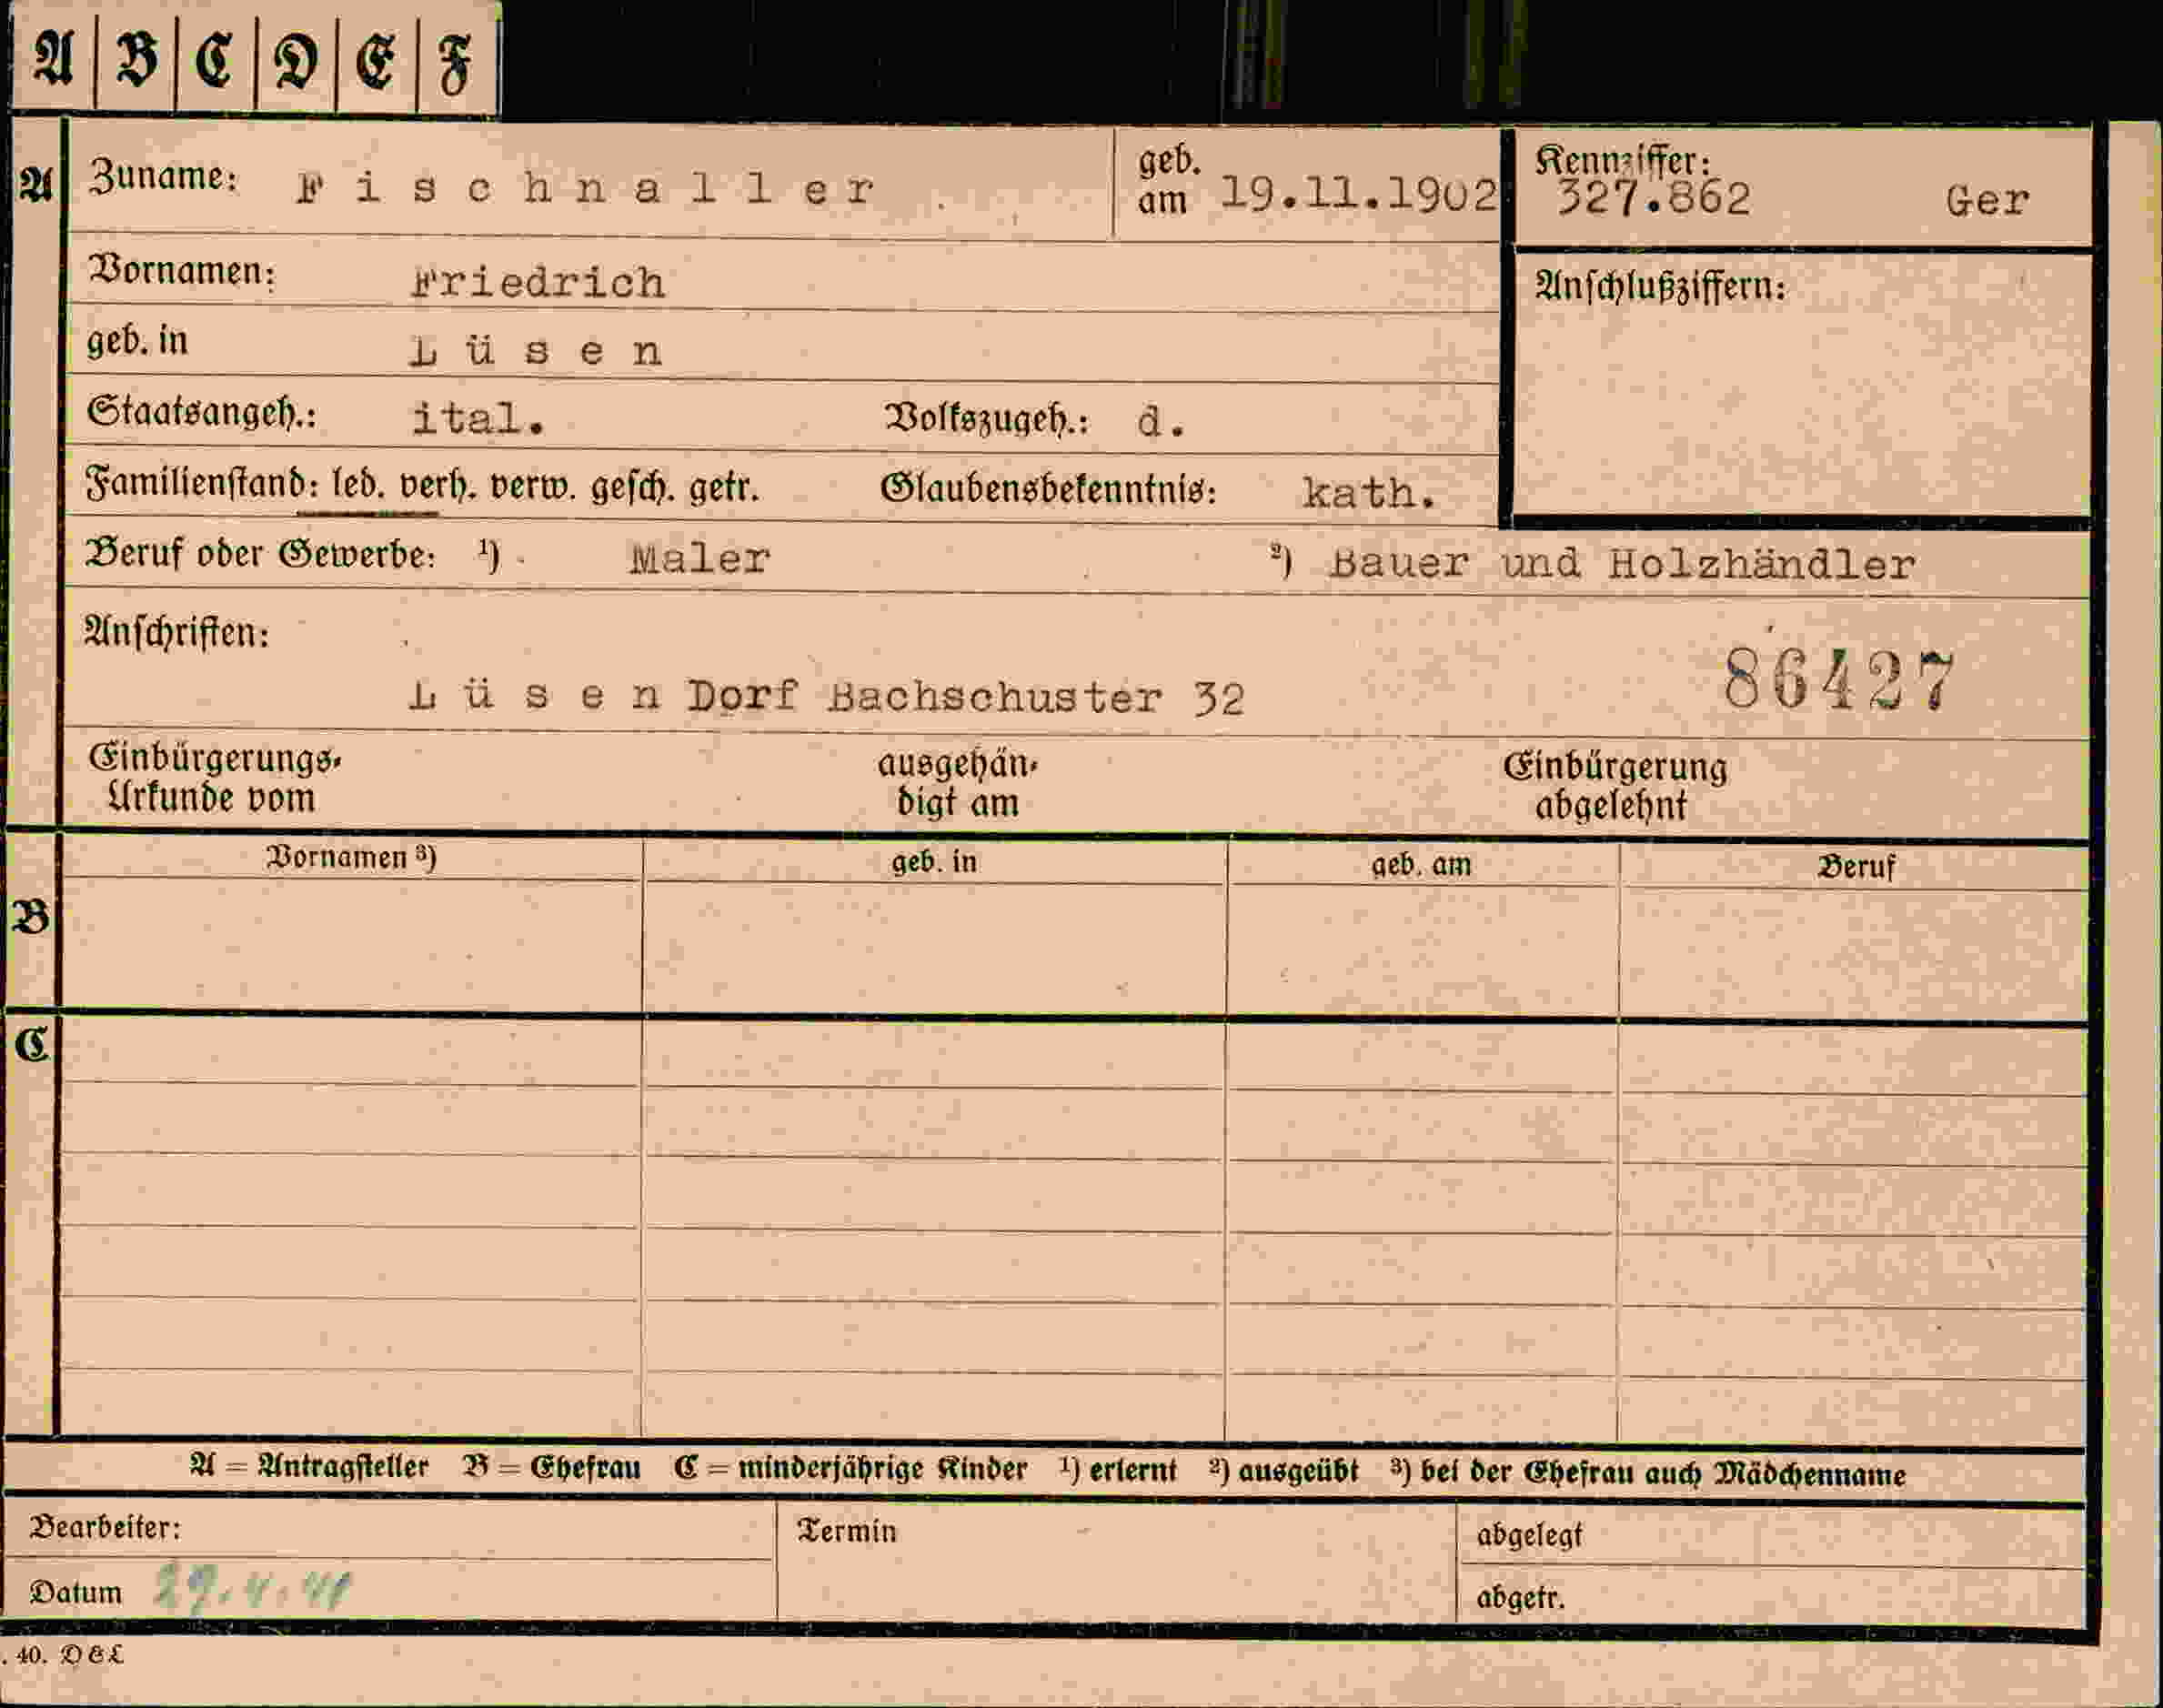 A B C D E F
A Zuname: Fischnaller geb. am 19.11.1902 Kennziffer: 327.862 Ger
Vornamen: Friedrich Anschlußziffern:
geb. in Lüsen
Staatsangeh.: ital. Volkszugeh.: d.
Familienstand: led. verh. verw. gesch. getr. Glaubensbekenntnis: kath.
Beruf oder Gewerbe: ¹) Maler ²) Bauer und Holzhändler
Anschriften:
Lüsen Dorf Bachschuster 32 86427
Einbürgerungs- ausgehän- Einbürgerung
Urkunde vom digt am abgelehnt
Vornamen ³) geb. in geb. am Beruf
B
C
A = Antragsteller B = Ehefrau C = minderjährige Kinder ¹) erlernt ²) ausgeübt ³) bei der Ehefrau auch Mädchenname
Bearbeiter: Termin abgelegt
Datum 29.4.41 abgetr.
. 40. D & L